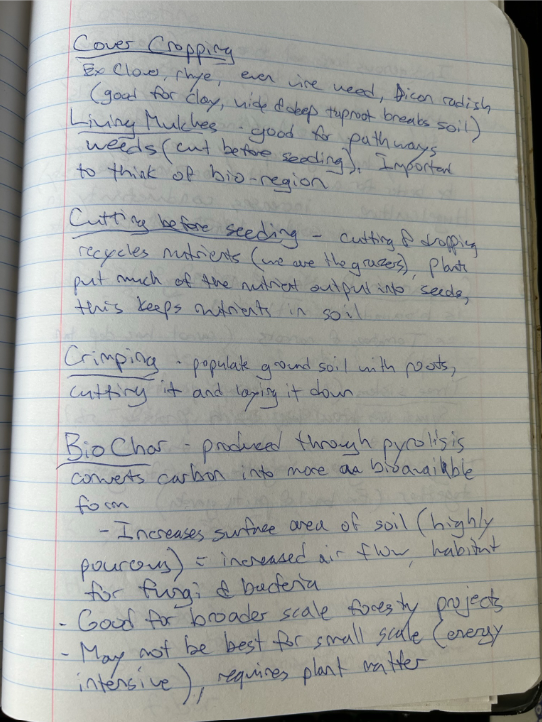 Cover Cropping
Ex Clover, rhye, even vire weed, Dicon radish
(good for clay, wide & deep taproot breaks soil)
Living Mulches - good for pathways
weeds (cut before seeding), Important
to think of bio-region
Cutting before seeding - cutting & dropping
recycles nutrients (we are the grazers), plants
put much of the nutrient output into seeds,
this keeps nutrients in soil
Crimping - populate ground soil with roots,
cutting it and laying it down
BioChar - produced through pyrolisis
converts carbon into more bioavailable
form
- Increases surface area of soil (highly
pourous) = increased air flow, habitat
for fungi & bacteria
- Good for broader scale foresty projects
- May not be best for small scale (energy
intensive), requires plant matter